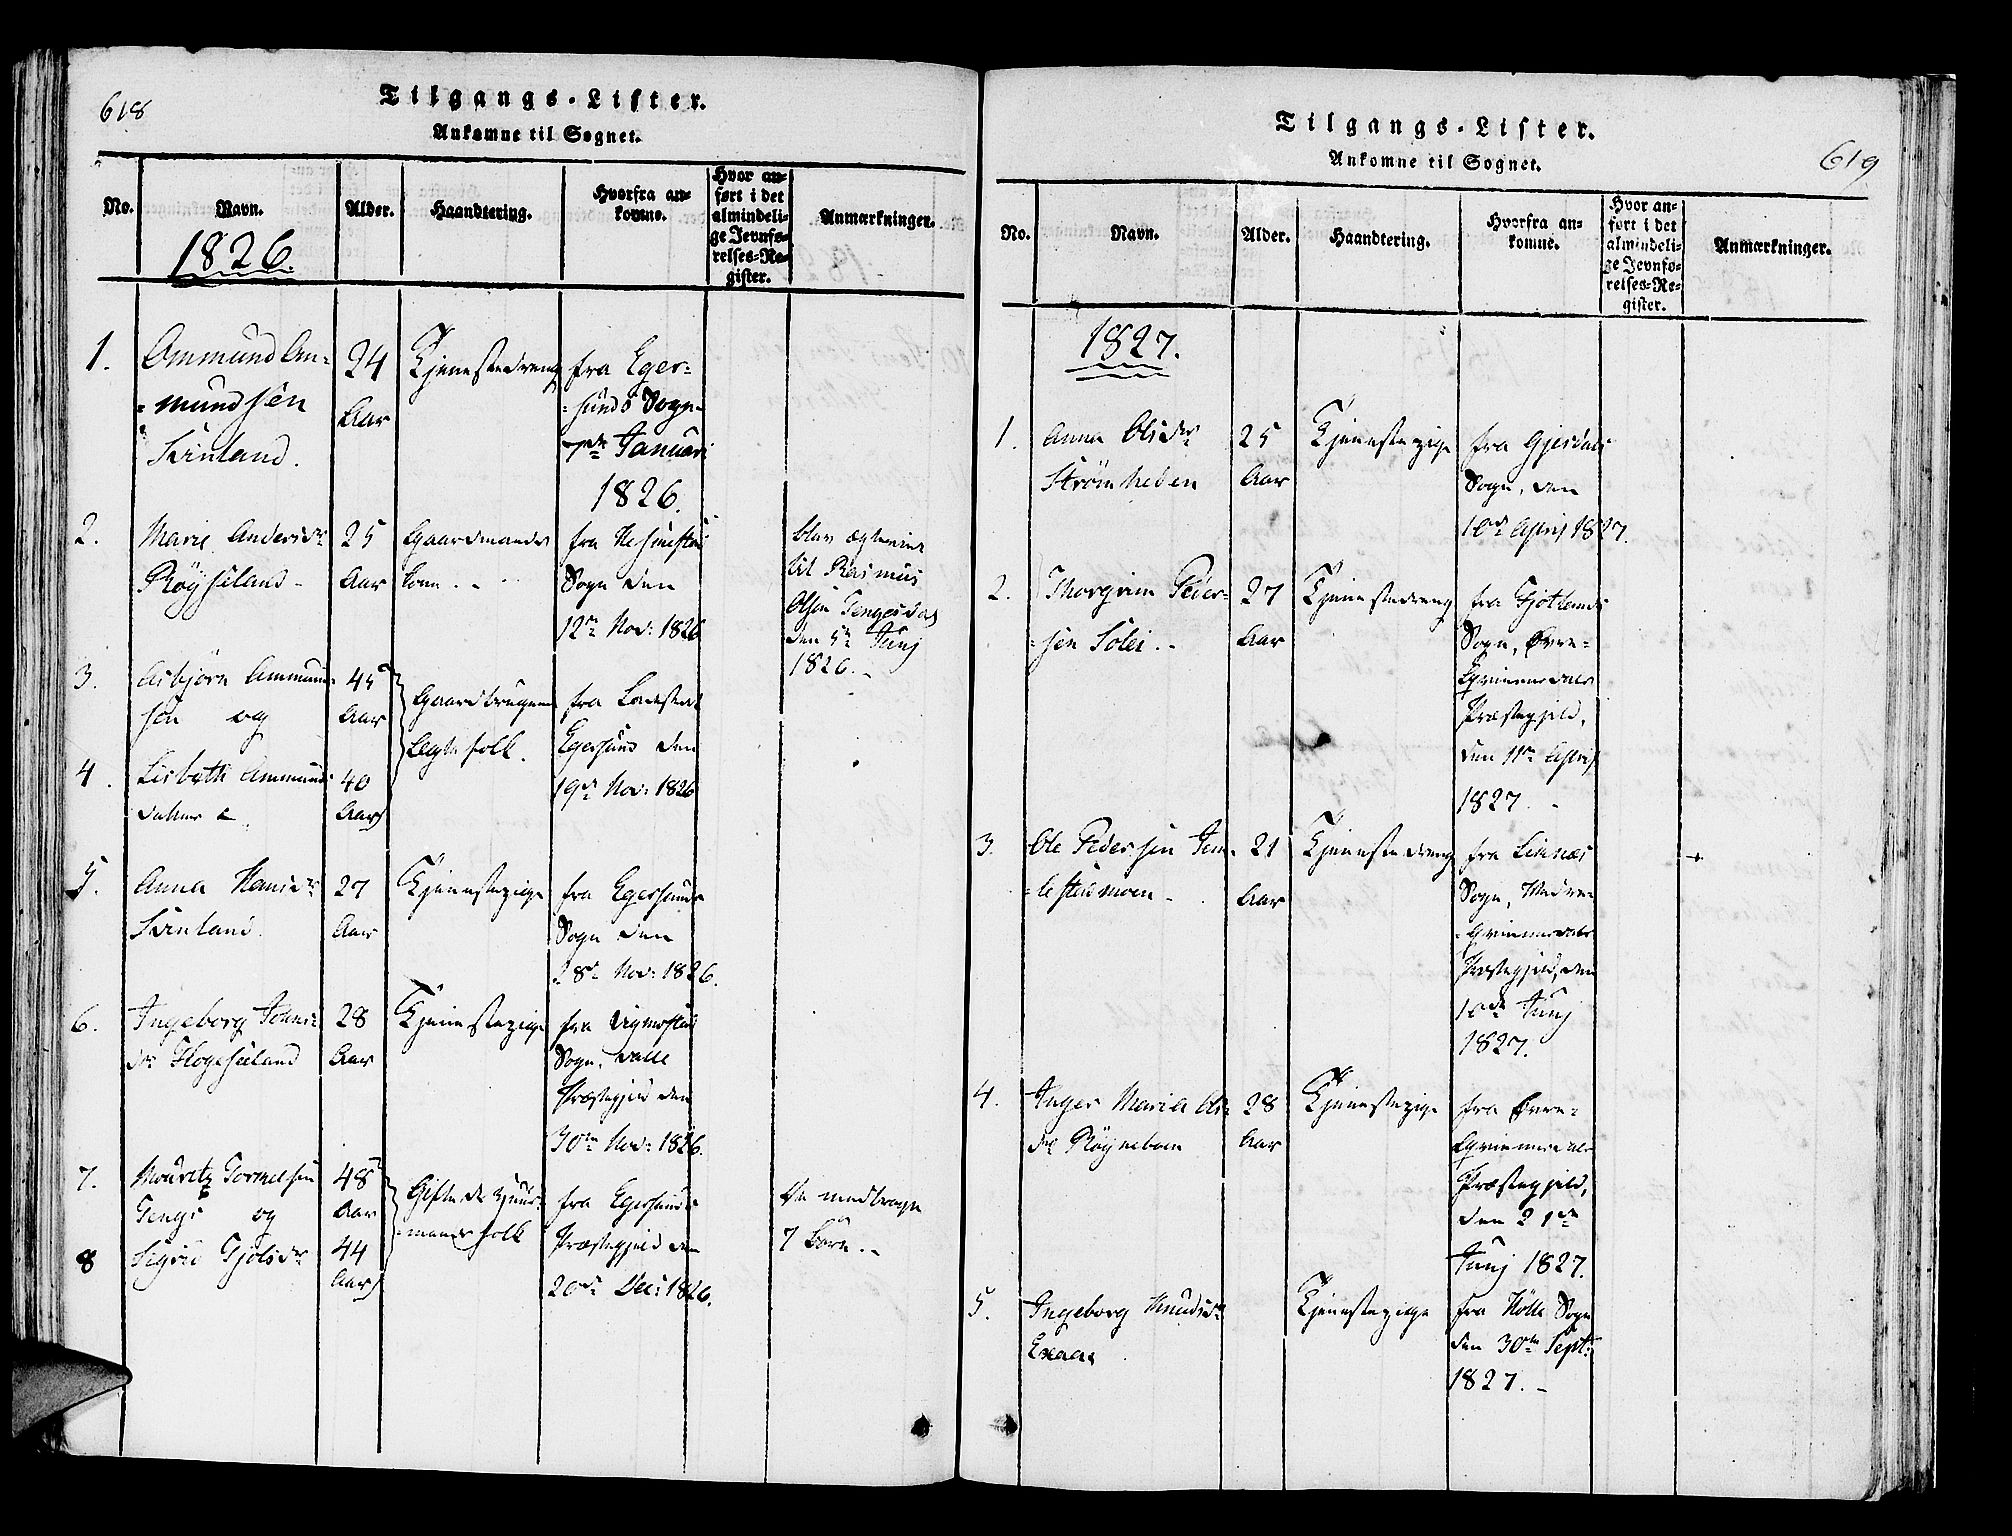 618
Tilgangs-Lister.
Ankomne til Sognet.
No.
Navn.
Alder.
Haandtering.
Hvorfra an-
komne.
Hvor an-
ført i det
almindeli-
ge Jevnfø-
relses-Re-
gister.
Anmærkninger.
1826.
1.
Ommund Om-
mundsen
24
Aar
Tjenestedreng
fra Eger-
sunds Sogn
Januari
1826.
2.
Marie Andersdr
Röyseland
25
Aar
Gaardmands
kone
fra
Sogn den
12te Nov: 1826
blev
til Rasmus
Olsen Tengesdal
den 5te Junj
1826.
3.
Asbjörn Ommund-
sen og
45
Aar
Gaardbrugende
Ægtefolk.
fra Ladested
Egersund den
19de Nov: 1826
4.
Lisbeth Ommunds
datter
40
Aar
5.
Anna Hansdr
27
Aar
Tjenestepige
fra Egersunds
Sogn den
Nov: 1826.
6.
Ingeborg Johns-
dr
28
Aar
Tjenestepige
fra Vigmostad
Sogn, Valle
Præstegjeld den
30te Nov: 1826.
7.
Mauritz Tormodsen
Tengs og
48
Aar
Gifte
fra Egersunds
Præstegjeld den
20de Dec: 1826.
De medbragte
7 Börn.
8
Sigrid
44
Aar
619
Tilgangs-Lister.
Ankomne til Sognet.
No.
Navn.
Alder.
Haandtering.
Hvorfra an-
komne.
Hvor an-
ført i det
almindeli-
ge Jevnfø-
relses-Re-
gister.
Anmærkninger.
1827.
1.
Anna Olsdr
Strömheden
25
Aar
Tjenestepige
fra Gjesdals
Sogn, den
10de April 1827.
2.
Thorgrim Peder-
sen Solei
27
Aar
Tjenestedreng
fra Fjotlands
Sogn, Övre-
Qvinnesdals
Præstegjeld,
den 11te April
1827.
3.
Ole Pedersen
21
Aar
Tjenestedreng
fra
Sogn, Nedre-
Qvinnesdals
Præstegjeld, den
10de Junj
1827.
4.
Inger Maria Ols-
dr
28
Aar
Tjenestepige
fra Övre-
Qvinnesdals
Præstegjeld,
den 21de
Junj 1827.
5.
Ingeborg Knudsdr
Tjenestepige
fra Hölle Sogn
den 30te Sept:
1827.